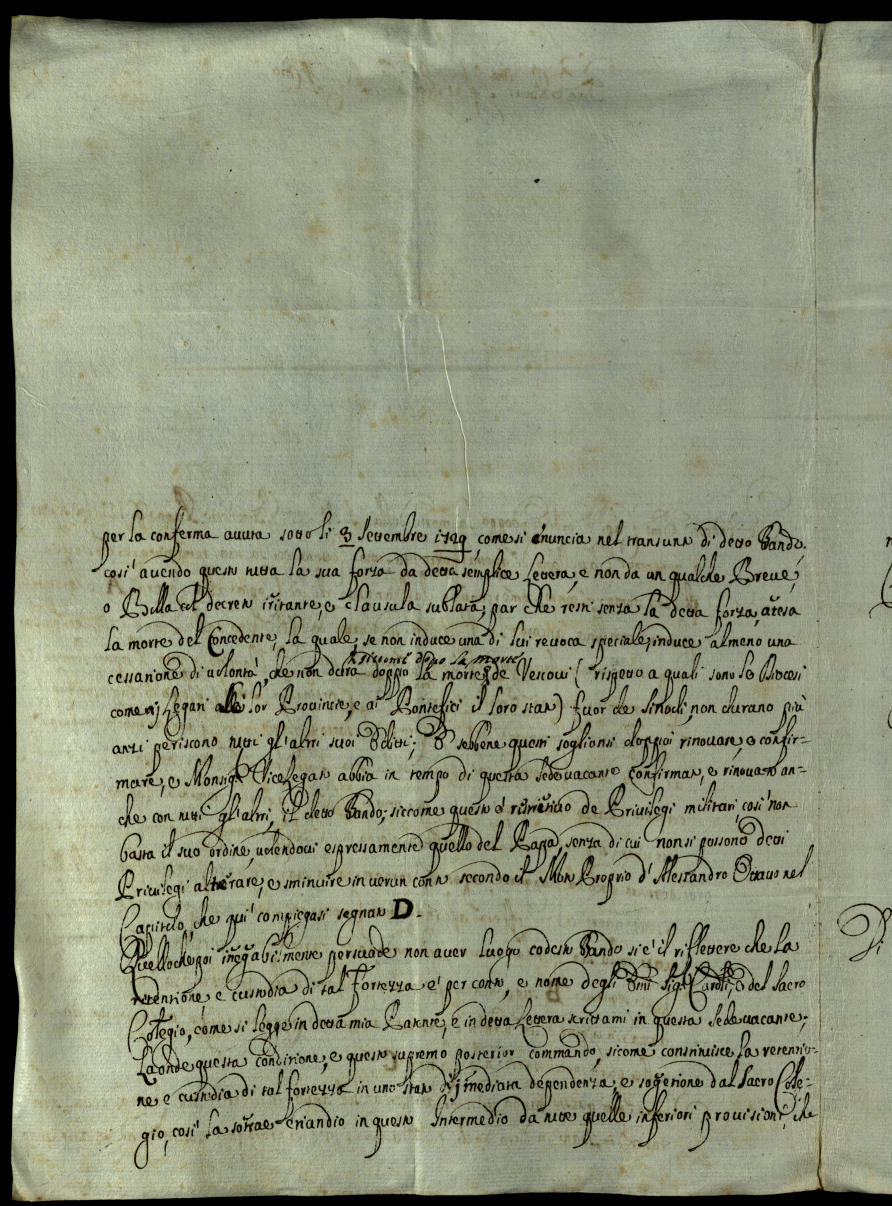 per la conferma avuta sotto li 3 Settembre 1729, come si enuncia nel transunto di detto Bando.
così avendo questo tutta la sua forza da detta semplice Lettera, e non da un qualche Breve,
o Bulla col decreto irritante, e clausula sublata, par che resti senza la detta forza, attesa
la morte del Concedente, la quale, se non induce una di lui revoca speciale, induce almeno una
cessazione di volontà, che non dura doppo la morte de Vescovi (rispetto a quali sono le Diocesi
come a i Legati alle lor Provincie, e ai Pontefici il loro stato) fuor che Sinodi, non durano più
anzi periscono tutti gl'altri suoi Editti; E sebbene questi soglionsi doppoi rinovare, e confir-
mare, e Monsigr Vicelegato abbia in tempo di questa Sede vacante confirmato, e rinovato an-
che con tutti gl'altri, il detto Bando; siccome questo è restrittivo de Privilegi militari, così non
basta il suo ordine, volendovi espressamente quello del Papa, senza di cui non si possono detti
Privilegi alterare, e sminuire in verun conto secondo il Moto Proprio d'Alessandro Ottavo nel
Capitolo, che qui compiegasi segnato D.
Quello che poi innegabilmente persuade non aver luogo codesto Bando si è il riflettere che la
retentione e custodia di tal Fortezza è per conto, e nome degli Emi Sigri Cardli, e del Sacro
Collegio, come si legge in detta mia Patente, e in detta Lettera scrittami in questa Sede vacante;
Laonde questa condizione, e questo supremo posterior commando, sicome constituisce la retentio-
ne e custodia di tal fortezza in uno stato d'immediata dependenza, e soggetione dal Sacro Colle-
gio, così la sottrae eziandio in questo Intermedio da tutte quelle inferiori provisioni, che